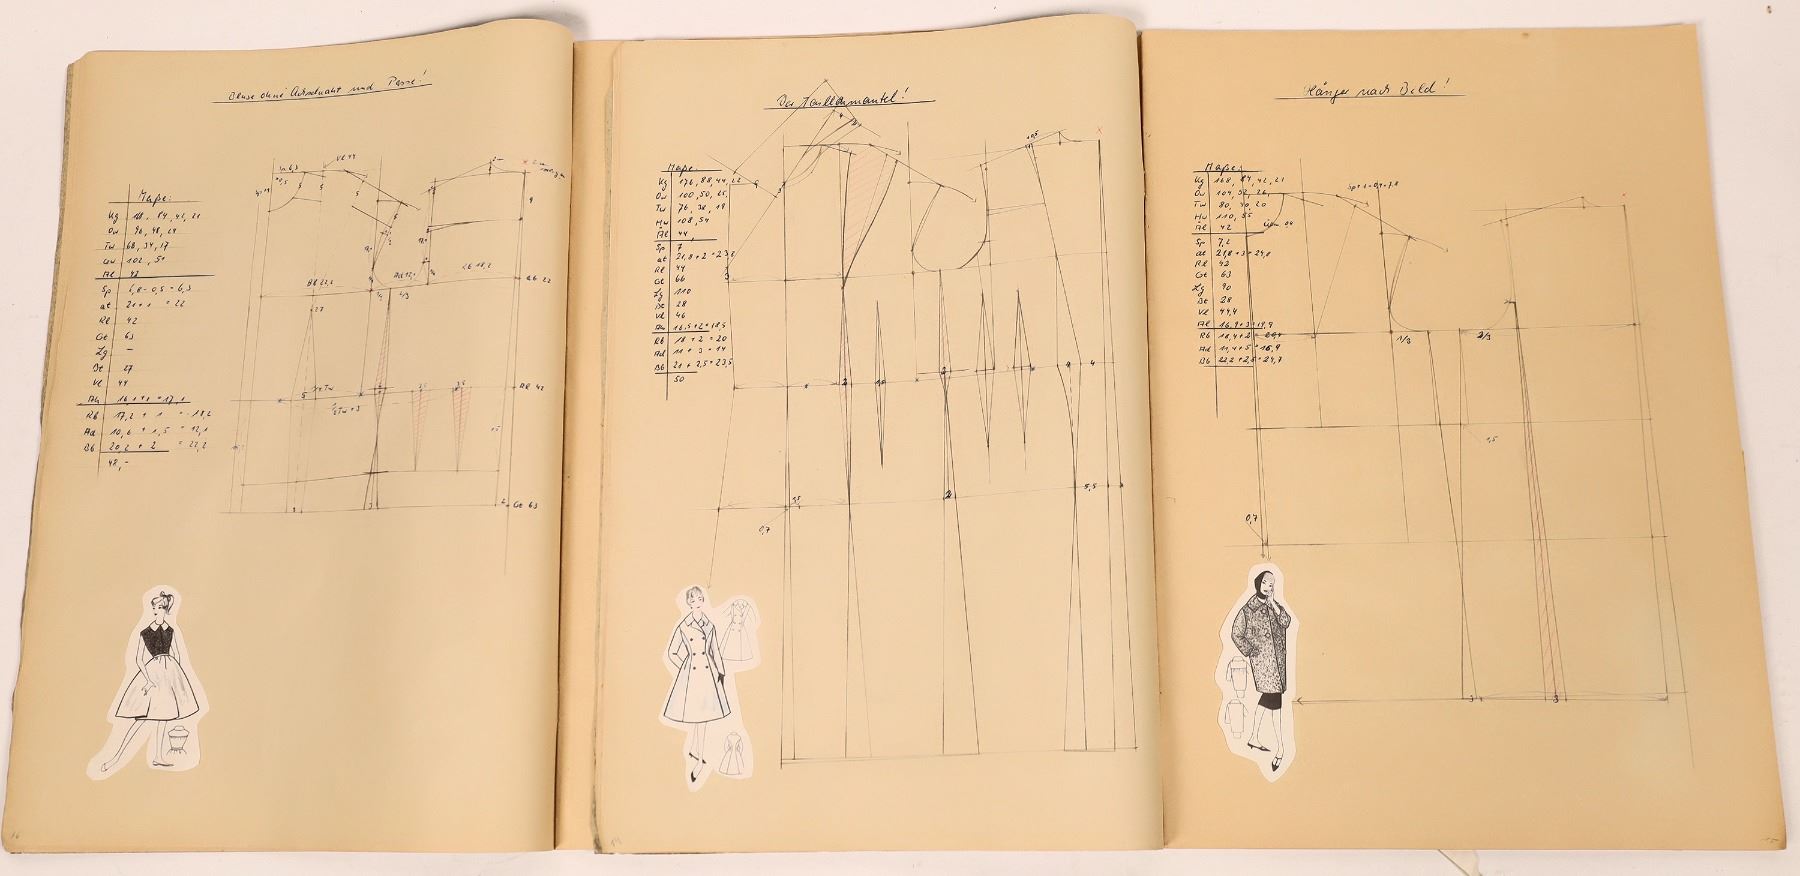 Bluse ohne Achselnaht und Passe!
Maße:
Kg 168, 84, 42, 21
Ow 96, 48, 24
Tw 68, 34, 17
Hw 102, 51
Al 42
Sp 6,8 - 0,5 = 6,3
at 21 + 1 = 22
Rl 42
Gt 63
Lg –
Bt 27
Vl 44
Ah 16 + 1 = 17,1
Rb 17,2 + 1 = 18,2
Ad 10,6 + 1,5 = 12,1
Bb 20,2 + 2 = 22,2
48,-
Sp 6,3
Vl 44
Bb 22,2
Rb 18,2
at 22
27
2/3
½ Tw
½ Tw + 3
Rl 42
Gt 63
16
Der Taillenmantel!
Maße:
Kg 176, 88, 44, 22
Ow 100, 50, 25
Tw 76, 38, 19
Hw 108, 54
Al 44
Sp 7
at 21,8 + 2 = 23,8
Rl 44
Gt 66
Lg 110
Bt 28
Vl 46
Ah 16,5 + 2 = 18,5
Rb 18 + 2 = 20
Ad 11 + 3 = 14
Bb 21 + 2,5 = 23,5
50
+0,5
4
4
5,5
2
0,7
Hänger nach Bild!
Maße:
Kg 168, 84, 42, 21
Ow 104, 52, 26
Tw 80, 40, 20
Hw 110, 55
Al 42
Sp 7,2
at 21,8 + 3 = 24,8
Rl 42
Gt 63
Lg 90
Bt 28
Vl 44,4
Ah 16,9 + 3 = 19,9
Rb 18,4 + 2 = 20,4
Ad 11,4 + 5 = 16,4
Bb 22,2 + 2,5 = 24,7
1/3
2/3
1,5
0,7
3
3